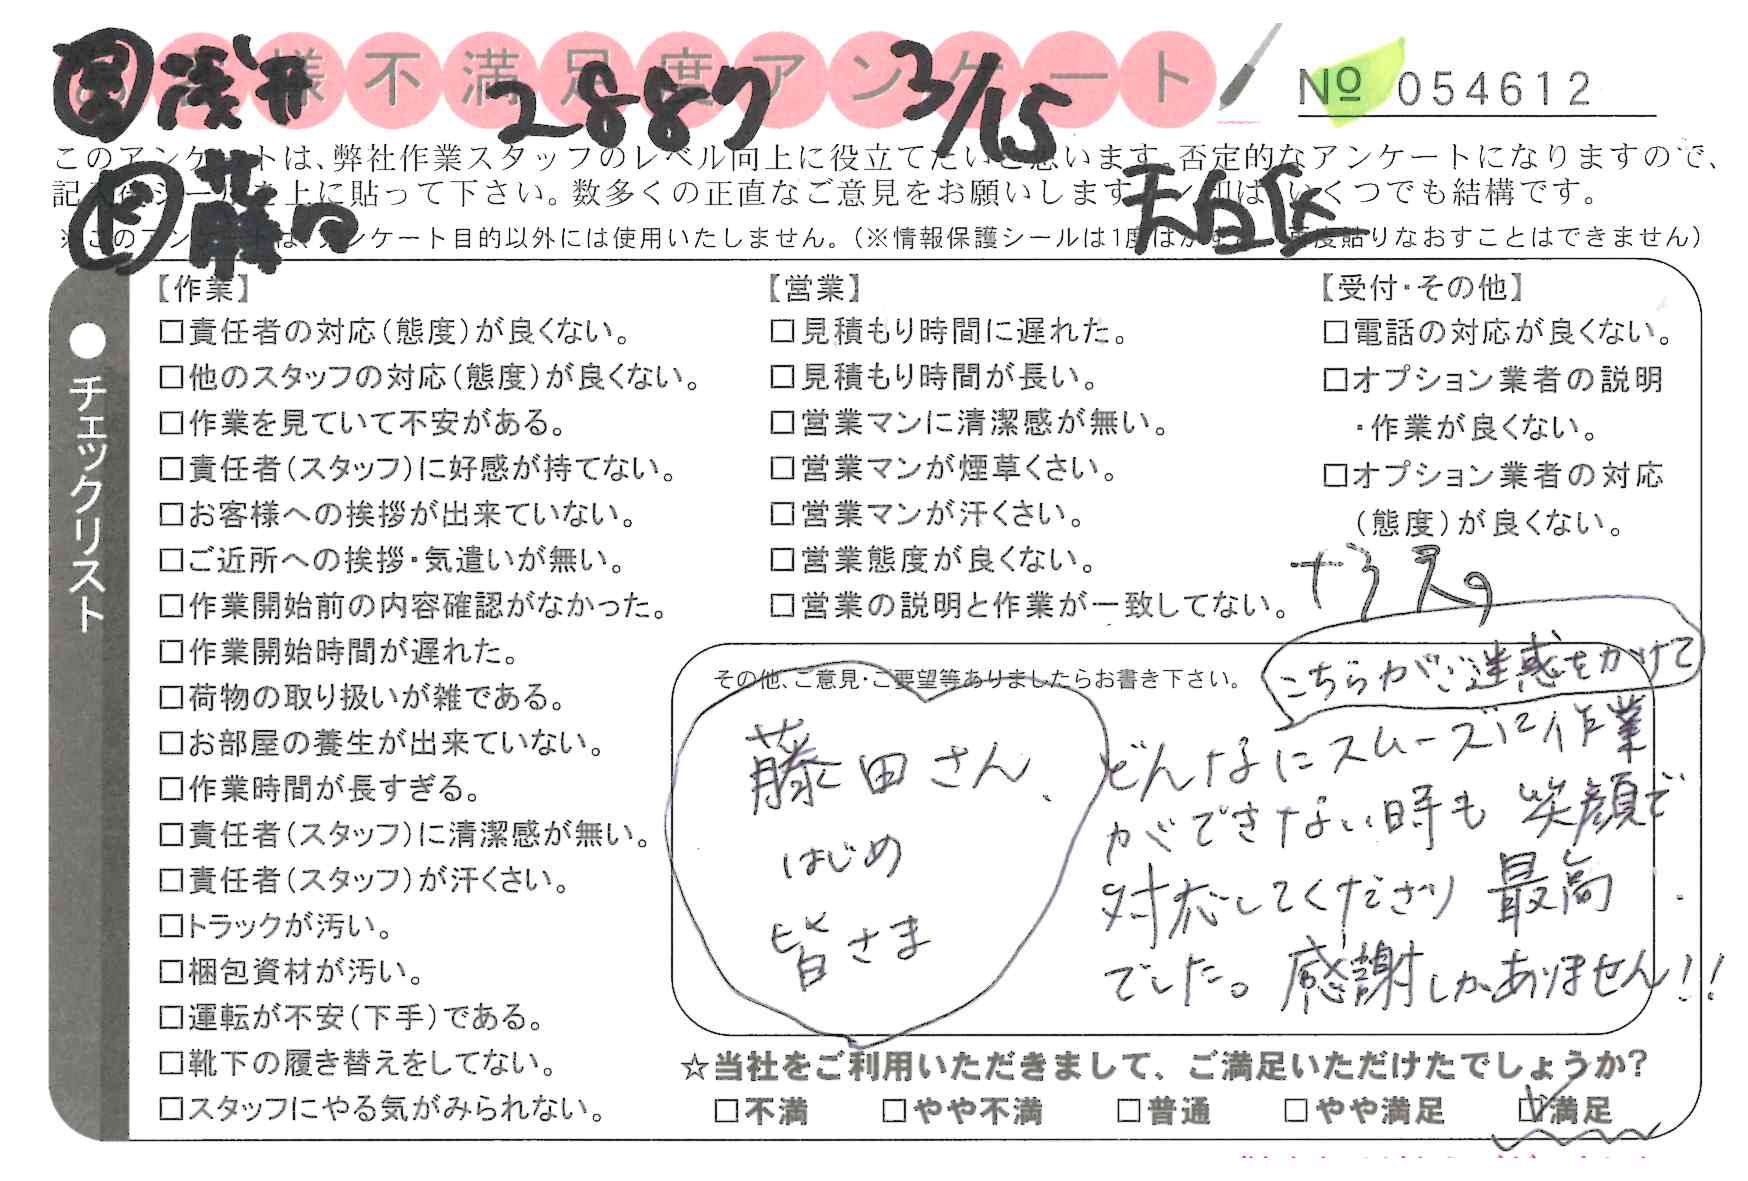 営 浅井 2887 3/15
様不満足度アンケート
№ 054612
作 藤田 天白区
このアンケートは、弊社作業スタッフのレベル向上に役立てたいと思います。否定的なアンケートになりますので、
記入後シールを上に貼って下さい。数多くの正直なご意見をお願いします。レ印はいくつでも結構です。
※このアンケートは、アンケート目的以外には使用いたしません。(※情報保護シールは1度はがすと、再度貼りなおすことはできません)
●チェックリスト
【作業】
□責任者の対応(態度)が良くない。
□他のスタッフの対応(態度)が良くない。
□作業を見ていて不安がある。
□責任者(スタッフ)に好感が持てない。
□お客様への挨拶が出来ていない。
□ご近所への挨拶・気遣いが無い。
□作業開始前の内容確認がなかった。
□作業開始時間が遅れた。
□荷物の取り扱いが雑である。
□お部屋の養生が出来ていない。
□作業時間が長すぎる。
□責任者(スタッフ)に清潔感が無い。
□責任者(スタッフ)が汗くさい。
□トラックが汚い。
□梱包資材が汚い。
□運転が不安(下手)である。
□靴下の履き替えをしてない。
□スタッフにやる気がみられない。
【営業】
□見積もり時間に遅れた。
□見積もり時間が長い。
□営業マンに清潔感が無い。
□営業マンが煙草くさい。
□営業マンが汗くさい。
□営業態度が良くない。
□営業の説明と作業が一致してない。
【受付・その他】
□電話の対応が良くない。
□オプション業者の説明
・作業が良くない。
□オプション業者の対応
(態度)が良くない。
その他、ご意見・ご要望等ありましたらお書き下さい。
藤田さん、
はじめ
皆さま
こちらがご迷惑をかけて
どんなにスムーズに作業
ができない時も笑顔で
対応してくださり最高
でした。感謝しかありません!!
☆当社をご利用いただきまして、ご満足いただけたでしょうか?
□不満 □やや不満 □普通 □やや満足 ☑満足